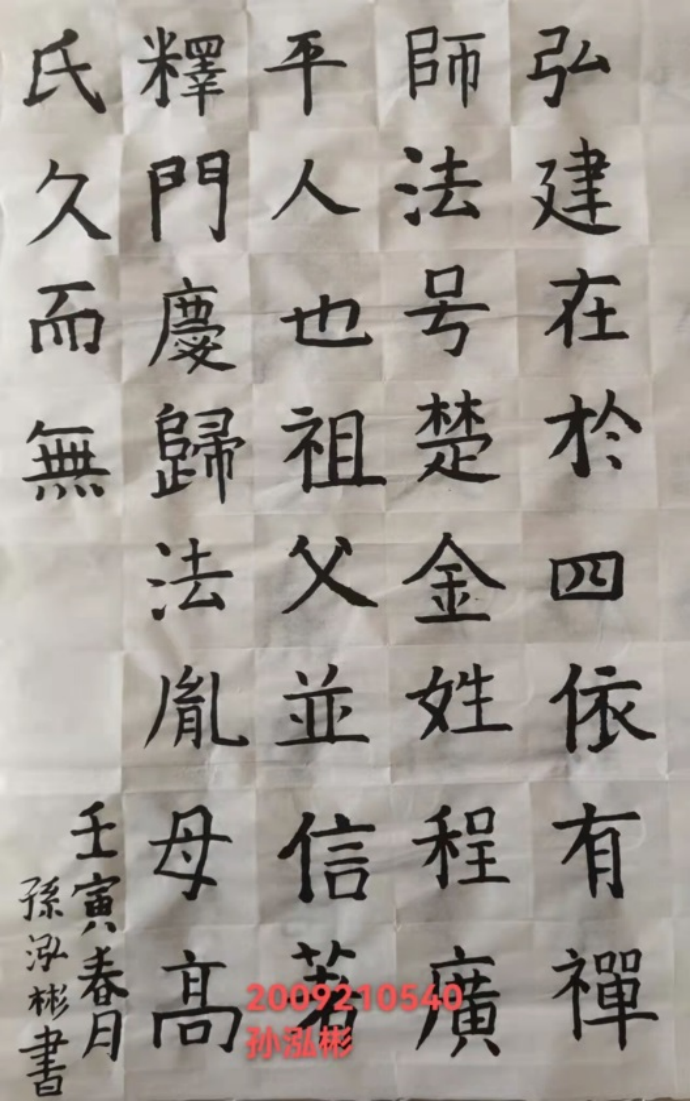 弘建在於四依有禪
師法号楚金姓程廣
平人也祖父並信著
釋門慶歸法胤母高
氏久而無
壬寅春月
孫泓彬書
2009210540
孙泓彬